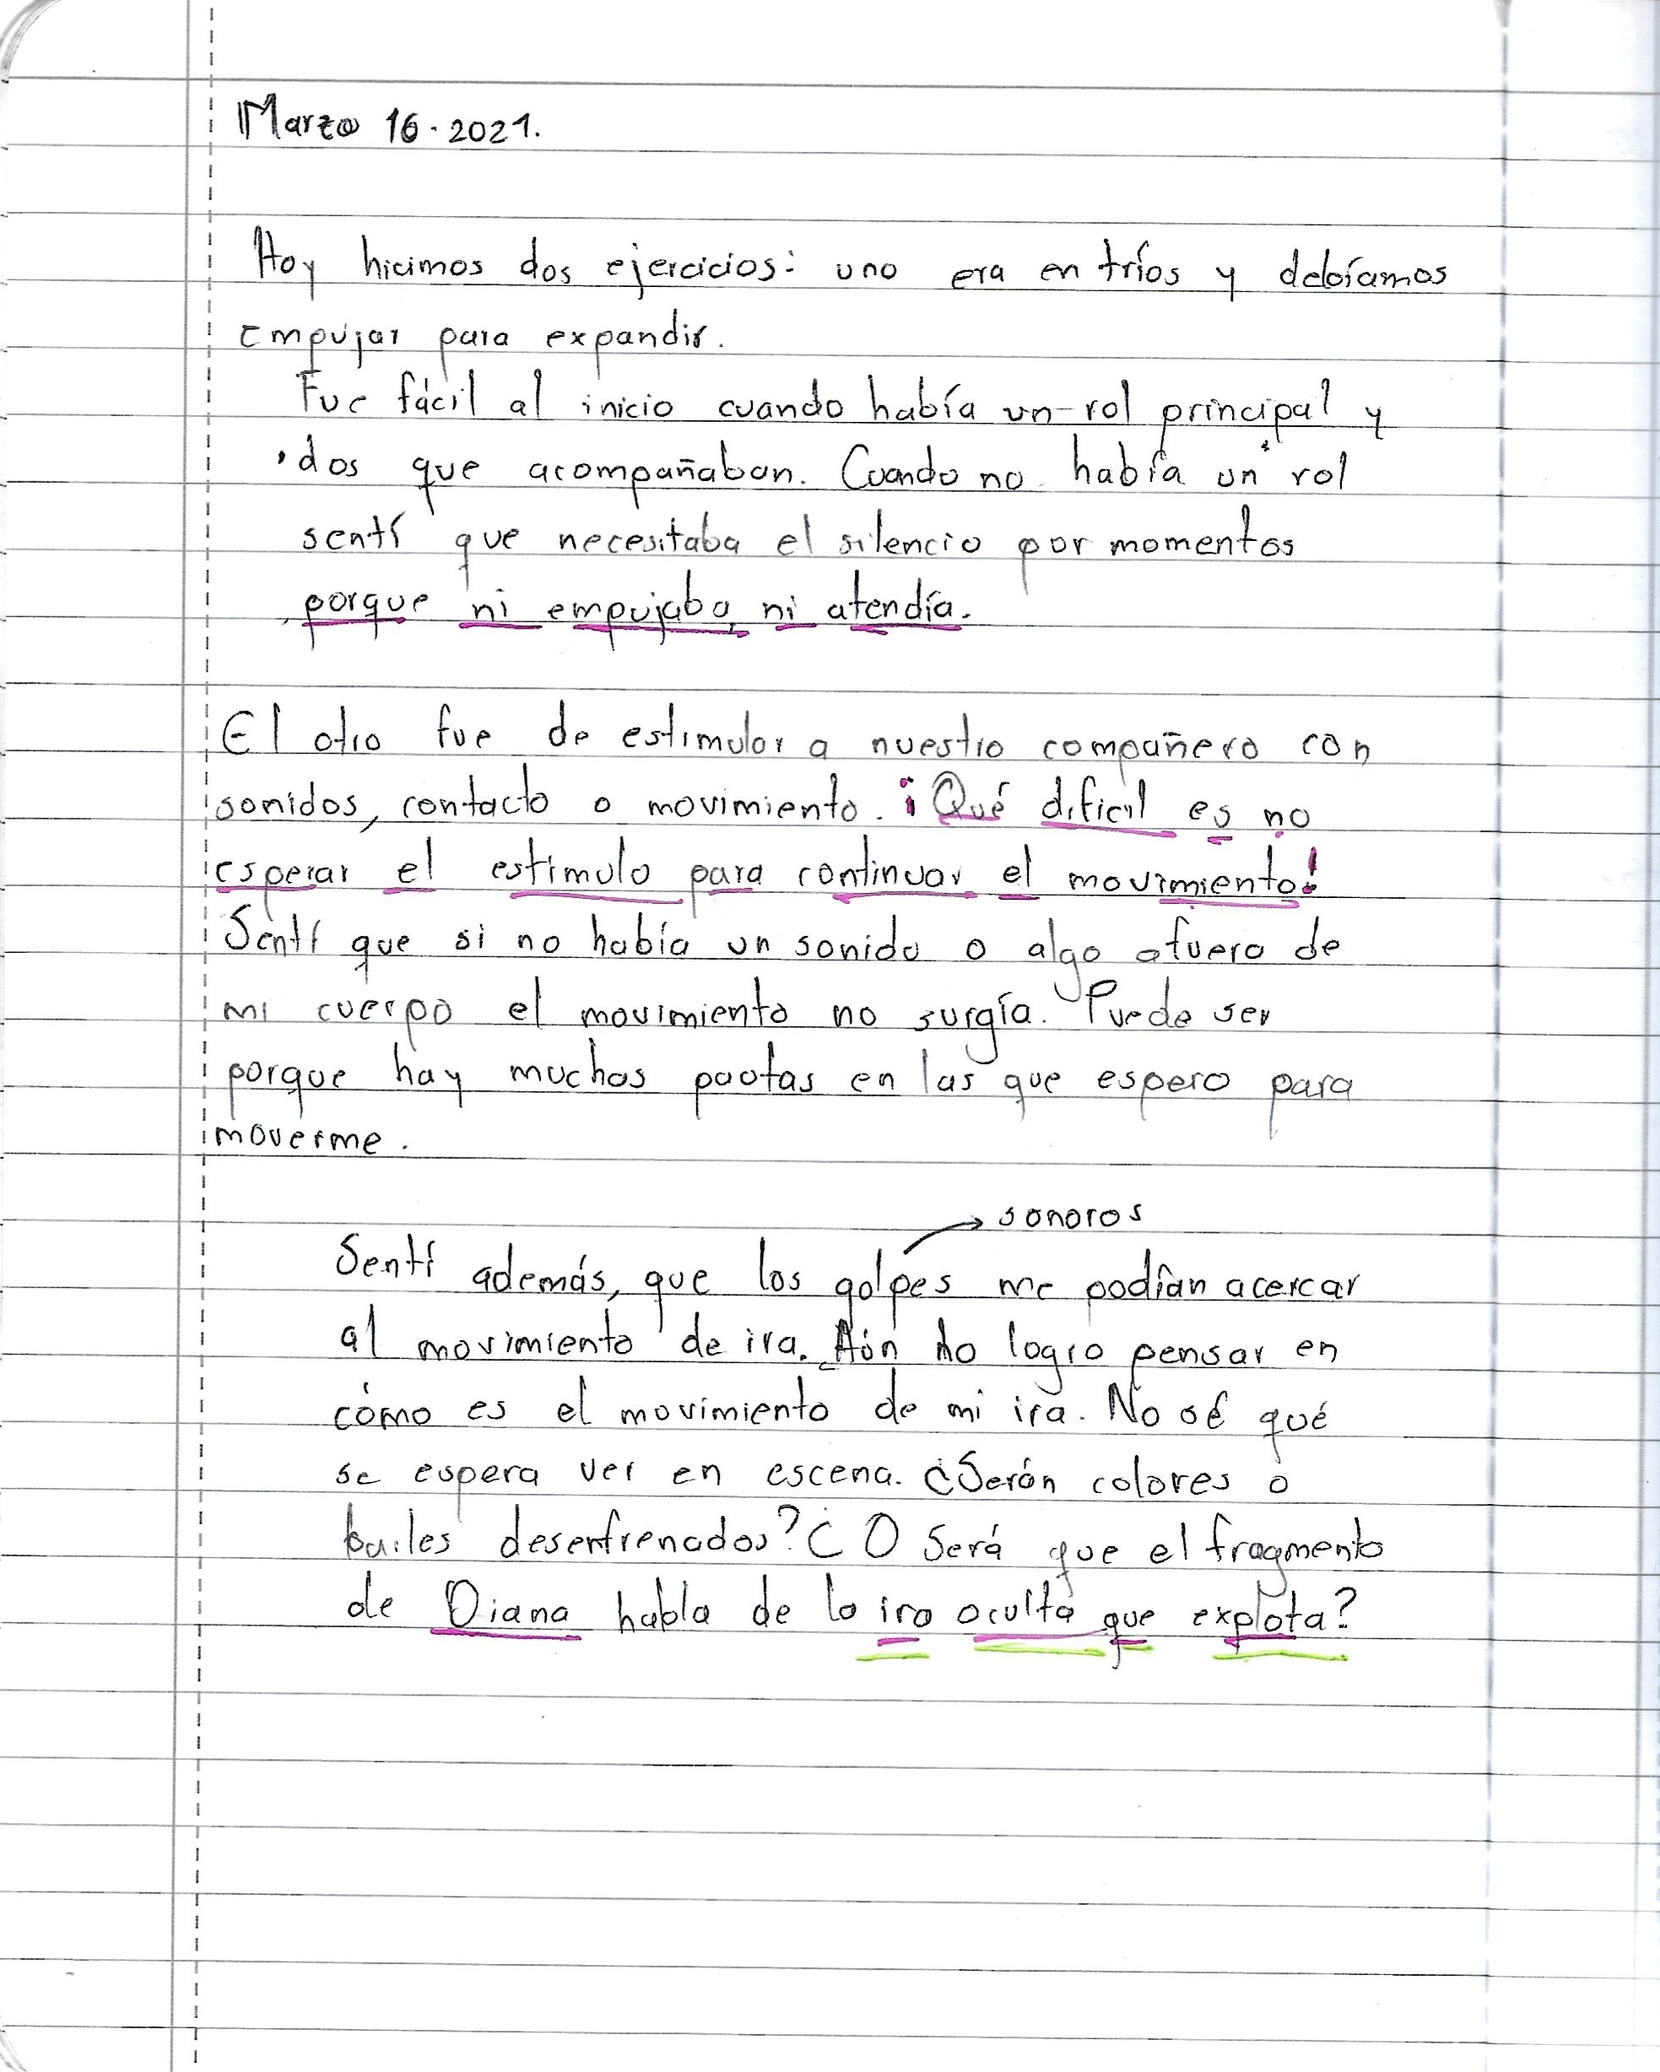 Marzo 16. 2021.
Hoy hicimos dos ejercicios: uno era en tríos y debíamos
empujar para expandir.
Fue fácil al inicio cuando había un rol principal y
dos que acompañaban. Cuando no había un rol
sentí que necesitaba el silencio por momentos
porque ni empujaba, ni atendía.
El otro fue de estimular a nuestro compañero con
sonidos, contacto o movimiento. ¡Qué dificil es no
esperar el estimulo para continuar el movimiento!
Sentí que si no había un sonido o algo afuera de
mi cuerpo el movimiento no surgía. Puede ser
porque hay muchas pautas en las que espero para
moverme.
sonoros
Sentí además, que los golpes me podían acercar
al movimiento de ira. Aún no logro pensar en
cómo es el movimiento de mi ira. No sé qué
se espera ver en escena. ¿Serán colores o
bailes desenfrenados? ¿O será que el fragmento
de Diana habla de la ira oculta que explota?